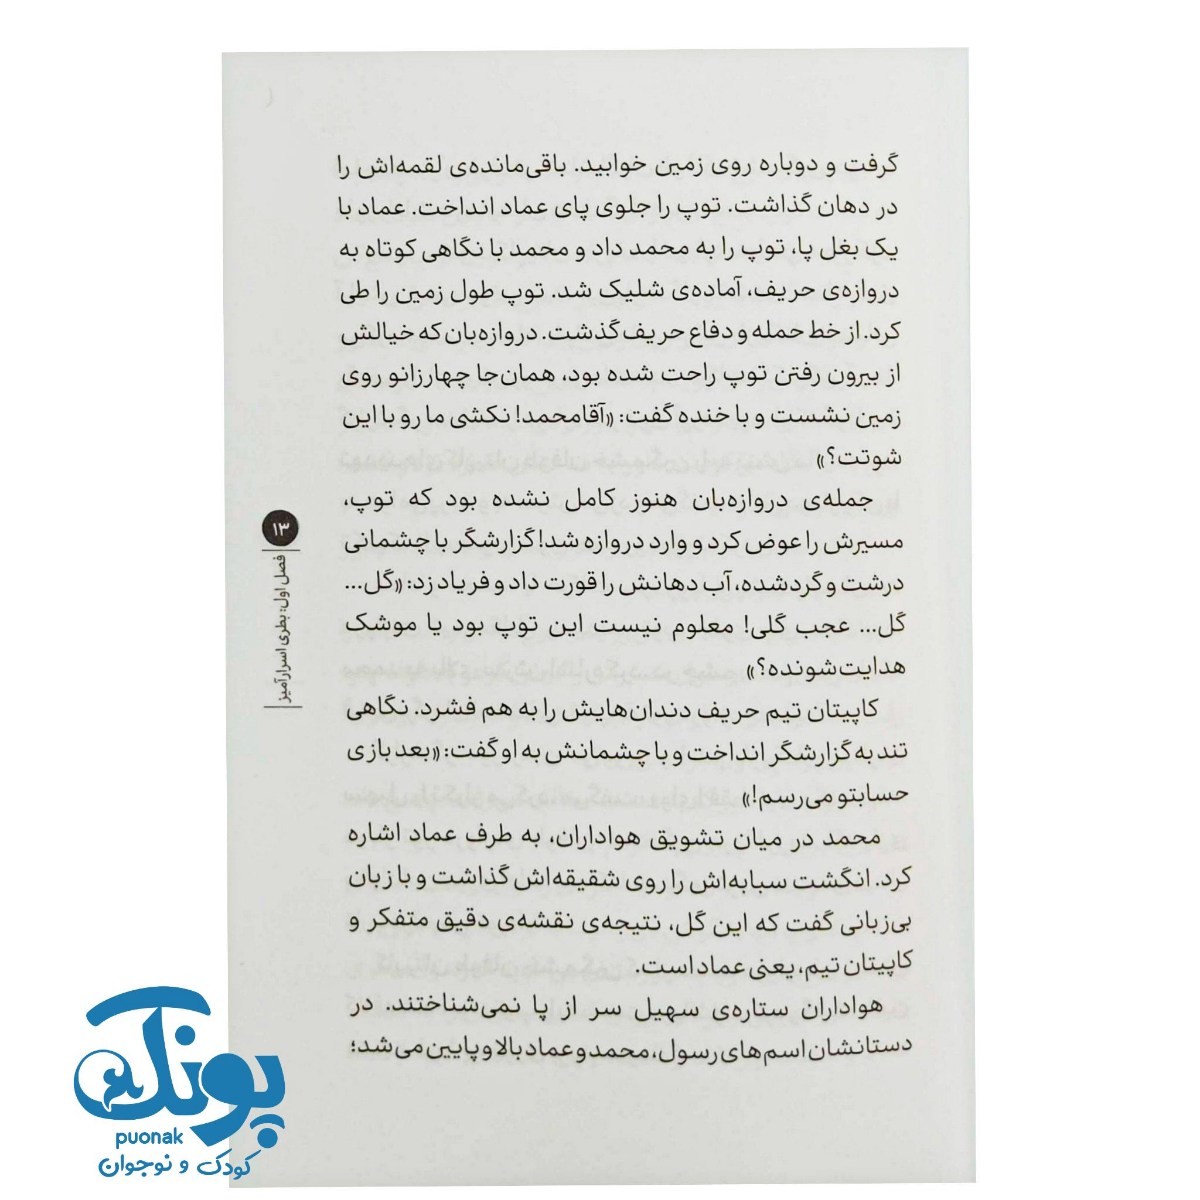 گرفت و دوباره روی زمین خوابید. باقی‌مانده‌ی لقمه‌اش را
در دهان گذاشت. توپ را جلوی پای عماد انداخت. عماد با
یک بغل پا، توپ را به محمد داد و محمد با نگاهی کوتاه به
دروازه‌ی حریف، آماده‌ی شلیک شد. توپ طول زمین را طی
کرد. از خط حمله و دفاع حریف گذشت. دروازه‌بان که خیالش
از بیرون رفتن توپ راحت شده بود، همان‌جا چهارزانو روی
زمین نشست و با خنده گفت: «آقامحمد! نکشی ما رو با این
شوتت؟»
جمله‌ی دروازه‌بان هنوز کامل نشده بود که توپ،
مسیرش را عوض کرد و وارد دروازه شد! گزارشگر با چشمانی
درشت و گردشده، آب دهانش را قورت داد و فریاد زد: «گل...
گل... عجب گلی! معلوم نیست این توپ بود یا موشک
هدایت‌شونده؟»
کاپیتان تیم حریف دندان‌هایش را به هم فشرد. نگاهی
تند به گزارشگر انداخت و با چشمانش به او گفت: «بعد بازی
حسابتو می‌رسم!»
محمد در میان تشویق هواداران، به طرف عماد اشاره
کرد. انگشت سبابه‌اش را روی شقیقه‌اش گذاشت و با زبان
بی‌زبانی گفت که این گل، نتیجه‌ی نقشه‌ی دقیق متفکر و
کاپیتان تیم، یعنی عماد است.
هواداران ستاره‌ی سهیل سر از پا نمی‌شناختند. در
دستانشان اسم‌های رسول، محمد و عماد بالا و پایین می‌شد؛
۱۳
فصل اول: بطری اسرارآمیز
پونک
puonak
کودک و نوجوان